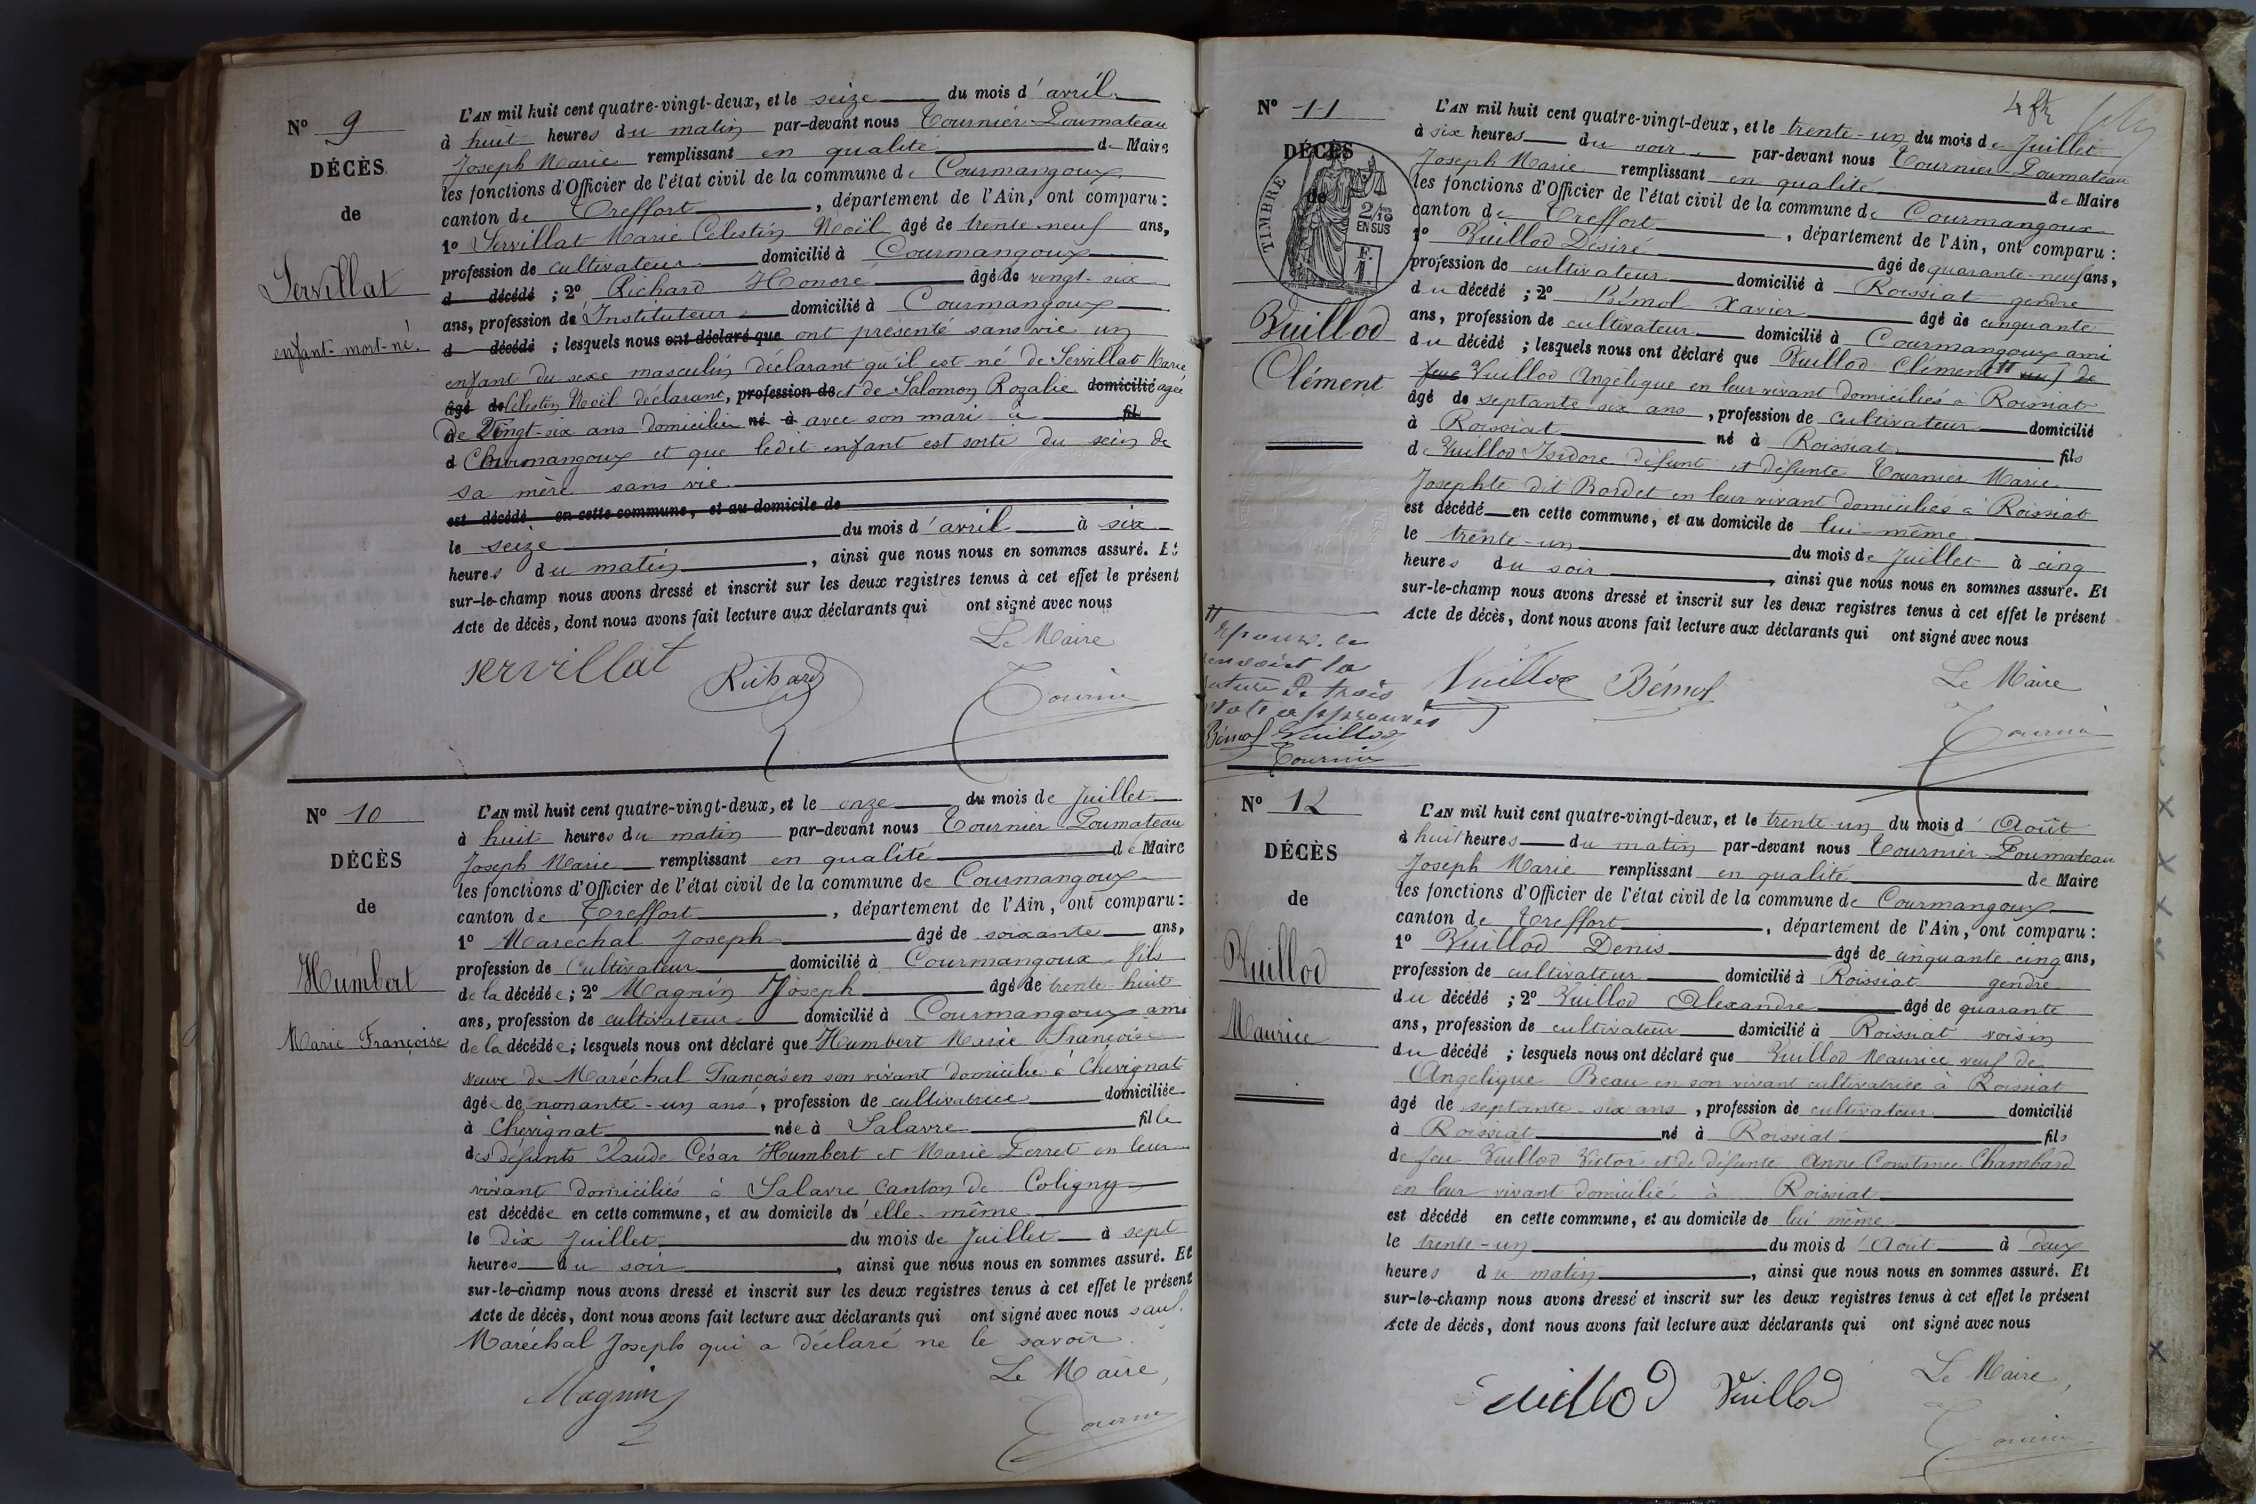 N° 9
DÉCÈS
de
Servillat
enfant mort-né.
L'AN mil huit cent quatre-vingt-deux, et le seize du mois d'avril
à huit heures du matin par-devant nous Tournier-Poumateau
Joseph Marie remplissant en qualité de Maire
les fonctions d'Officier de l'état civil de la commune de Courmangoux
canton de Treffort, département de l'Ain, ont comparu:
1° Servillat Marie Célestin Noël âgé de trente-neuf ans,
profession de cultivateur domicilié à Courmangoux
d décédé ; 2° Richard Honoré âgé de vingt-six
ans, profession de Instituteur domicilié à Courmangoux
d décédé ; lesquels nous ont déclaré que ont présenté sans vie un
enfant du sexe masculin déclarant qu'il est né de Servillat Marie
âgé de Célestin Noël déclarant, profession de et de Salomon Rozalie domicilié agée
de Vingt-six ans domiciliée né à avec son mari à fil
d Courmangoux et que ledit enfant est sorti du sein de
sa mère sans vie
est décédé en cette commune, et au domicile de
le seize du mois d'avril à six
heures du matin, ainsi que nous nous en sommes assuré. Et
sur-le-champ nous avons dressé et inscrit sur les deux registres tenus à cet effet le présent
Acte de décès, dont nous avons fait lecture aux déclarants qui ont signé avec nous
Le Maire
servillat Richard Tournier
N° 10
DÉCÈS
de
Humbert
Marie Françoise
L'AN mil huit cent quatre-vingt-deux, et le onze du mois de Juillet
à huit heures du matin par-devant nous Tournier Poumateau
Joseph Marie remplissant en qualité de Maire
les fonctions d'Officier de l'état civil de la commune de Courmangoux
canton de Treffort, département de l'Ain, ont comparu:
1° Maréchal Joseph âgé de soixante ans,
profession de Cultivateur domicilié à Courmangoux fils
de la décédée; 2° Magnin Joseph âgé de trente-huit
ans, profession de cultivateur domicilié à Courmangoux ami
de la décédée; lesquels nous ont déclaré que Humbert Marie Françoise
veuve de Maréchal François en son vivant domicilié à Chevignat
âgée de nonante-un ans, profession de cultivatrice domiciliée
à Chevignat née à Salavre fille
des défunts Claude César Humbert et Marie Perret en leur
vivant domiciliés à Salavre canton de Coligny
est décédée en cette commune, et au domicile d'elle-même
le Dix Juillet du mois de Juillet à sept
heures du soir, ainsi que nous nous en sommes assuré. Et
sur-le-champ nous avons dressé et inscrit sur les deux registres tenus à cet effet le présent
Acte de décès, dont nous avons fait lecture aux déclarants qui ont signé avec nous sauf
Maréchal Joseph qui a déclaré ne le savoir.
Le Maire,
Magnin
Tournier
4 fr
N° 11
DÉCÈS
de
TIMBRE
2/10
EN SUS
F.
1
Vuillod
Clément
L'AN mil huit cent quatre-vingt-deux, et le trente-un du mois de Juillet
à six heures du soir par-devant nous Tournier-Poumateau
Joseph Marie remplissant en qualité de Maire
les fonctions d'Officier de l'état civil de la commune de Courmangoux
canton de Treffort, département de l'Ain, ont comparu:
1° Vuillod Désiré âgé de quarante-neuf ans,
profession de cultivateur domicilié à Roissiat gendre
du décédé ; 2° Bémol Xavier âgé de cinquante
ans, profession de cultivateur domicilié à Courmangoux ami
du décédé ; lesquels nous ont déclaré que Vuillod Clément veuf de
feue Vuillod Angélique en leur vivant domiciliés à Roissiat
âgé de septante-six ans, profession de cultivateur domicilié
à Roissiat né à Roissiat fils
de Vuillod Isidore défunt et défunte Tournier Marie
Josephte dit Bordet en leur vivant domiciliés à Roissiat
est décédé en cette commune, et au domicile de lui-même
le trente-un du mois de Juillet à cinq
heures du soir, ainsi que nous nous en sommes assuré. Et
sur-le-champ nous avons dressé et inscrit sur les deux registres tenus à cet effet le présent
Acte de décès, dont nous avons fait lecture aux déclarants qui ont signé avec nous
Le Maire
Vuillod Bémol
Tournier
de trois
approuvés
Bémol Vuillod
Tournier
N° 12
DÉCÈS
de
Vuillod
Maurice
L'AN mil huit cent quatre-vingt-deux, et le trente-un du mois d'Août
à huit heures du matin par-devant nous Tournier-Poumateau
Joseph Marie remplissant en qualité de Maire
les fonctions d'Officier de l'état civil de la commune de Courmangoux
canton de Treffort, département de l'Ain, ont comparu:
1° Vuillod Denis âgé de cinquante-cinq ans,
profession de cultivateur domicilié à Roissiat gendre
du décédé ; 2° Vuillod Alexandre âgé de quarante
ans, profession de cultivateur domicilié à Roissiat voisin
du décédé ; lesquels nous ont déclaré que Vuillod Maurice veuf de
Angelique Beau en son vivant cultivatrice à Roissiat
âgé de septante-six ans, profession de cultivateur domicilié
à Roissiat né à Roissiat fils
de feu Vuillod Victor et de défunte Anne Constance Chambard
en leur vivant domicilié à Roissiat
est décédé en cette commune, et au domicile de lui même
le trente-un du mois d'Août à deux
heures du matin, ainsi que nous nous en sommes assuré. Et
sur-le-champ nous avons dressé et inscrit sur les deux registres tenus à cet effet le présent
Acte de décès, dont nous avons fait lecture aux déclarants qui ont signé avec nous
Le Maire,
Vuillod Vuillod
Tournier